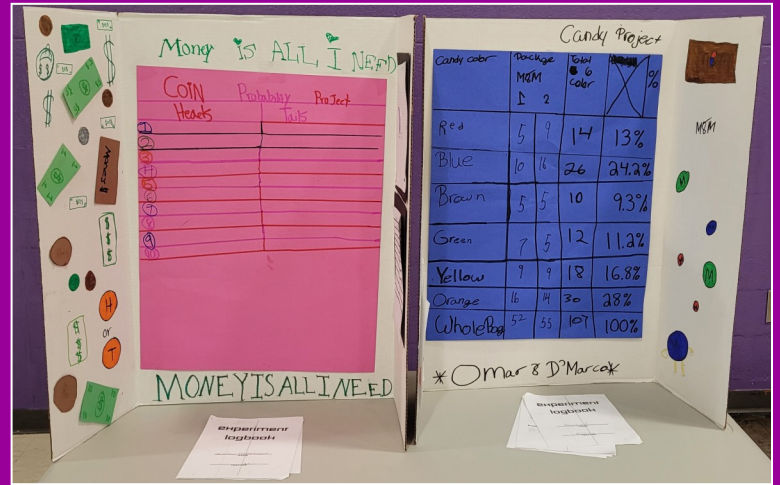 Money is ALL I NEED
COIN Probability Project
Heads Tails
1
2
3
4
5
6
7
8
9
10
MONEY IS ALL I NEED
H
or
T
$
$
$
Candy Project
Candy color Package Total %
M&M 6 color
1 2
Red 5 9 14 13%
Blue 10 16 26 24.2%
Brown 5 5 10 9.3%
Green 7 5 12 11.2%
Yellow 9 9 18 16.8%
Orange 16 14 30 28%
Whole Bag 52 55 107 100%
* Omar & D'Marco *
M&M
M
M
experiment
logbook
experiment
logbook